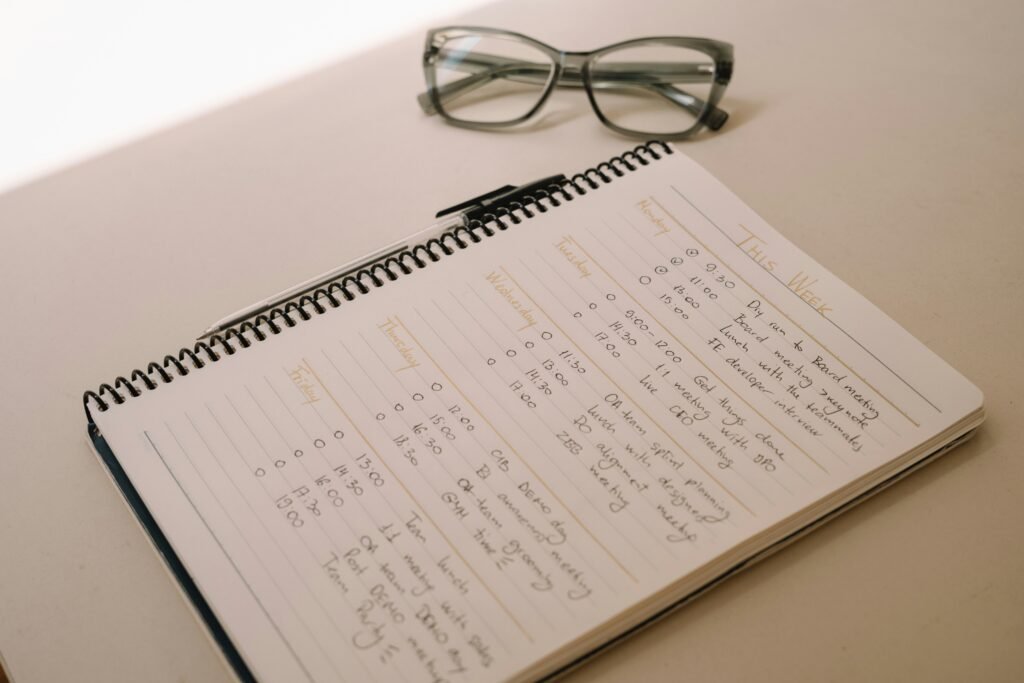 THIS WEEK
Monday
9:30 Dry run to Board meeting
11:00 Board meeting keynote
13:00 Lunch with the teammates
15:00 FE developer interview
Tuesday
9:00-12:00 Get things done
14.30 1:1 meeting with DPO
17.00 Live CEO meeting
Wednesday
11.30 OA team sprint planning
13:00 Lunch with designers
14:30 PO alignment meetup
17:00 ZEEB meeting
Thursday
12:00 CIB DEMO day
15:00 BI awareness meeting
16.30 OA team grooming
18.30 GYM time
Friday
13:00 Team lunch
14:30 1:1 meeting with sales
16:00 OA team DEMO day
17.30 Post DEMO meeting
19:00 Team Party